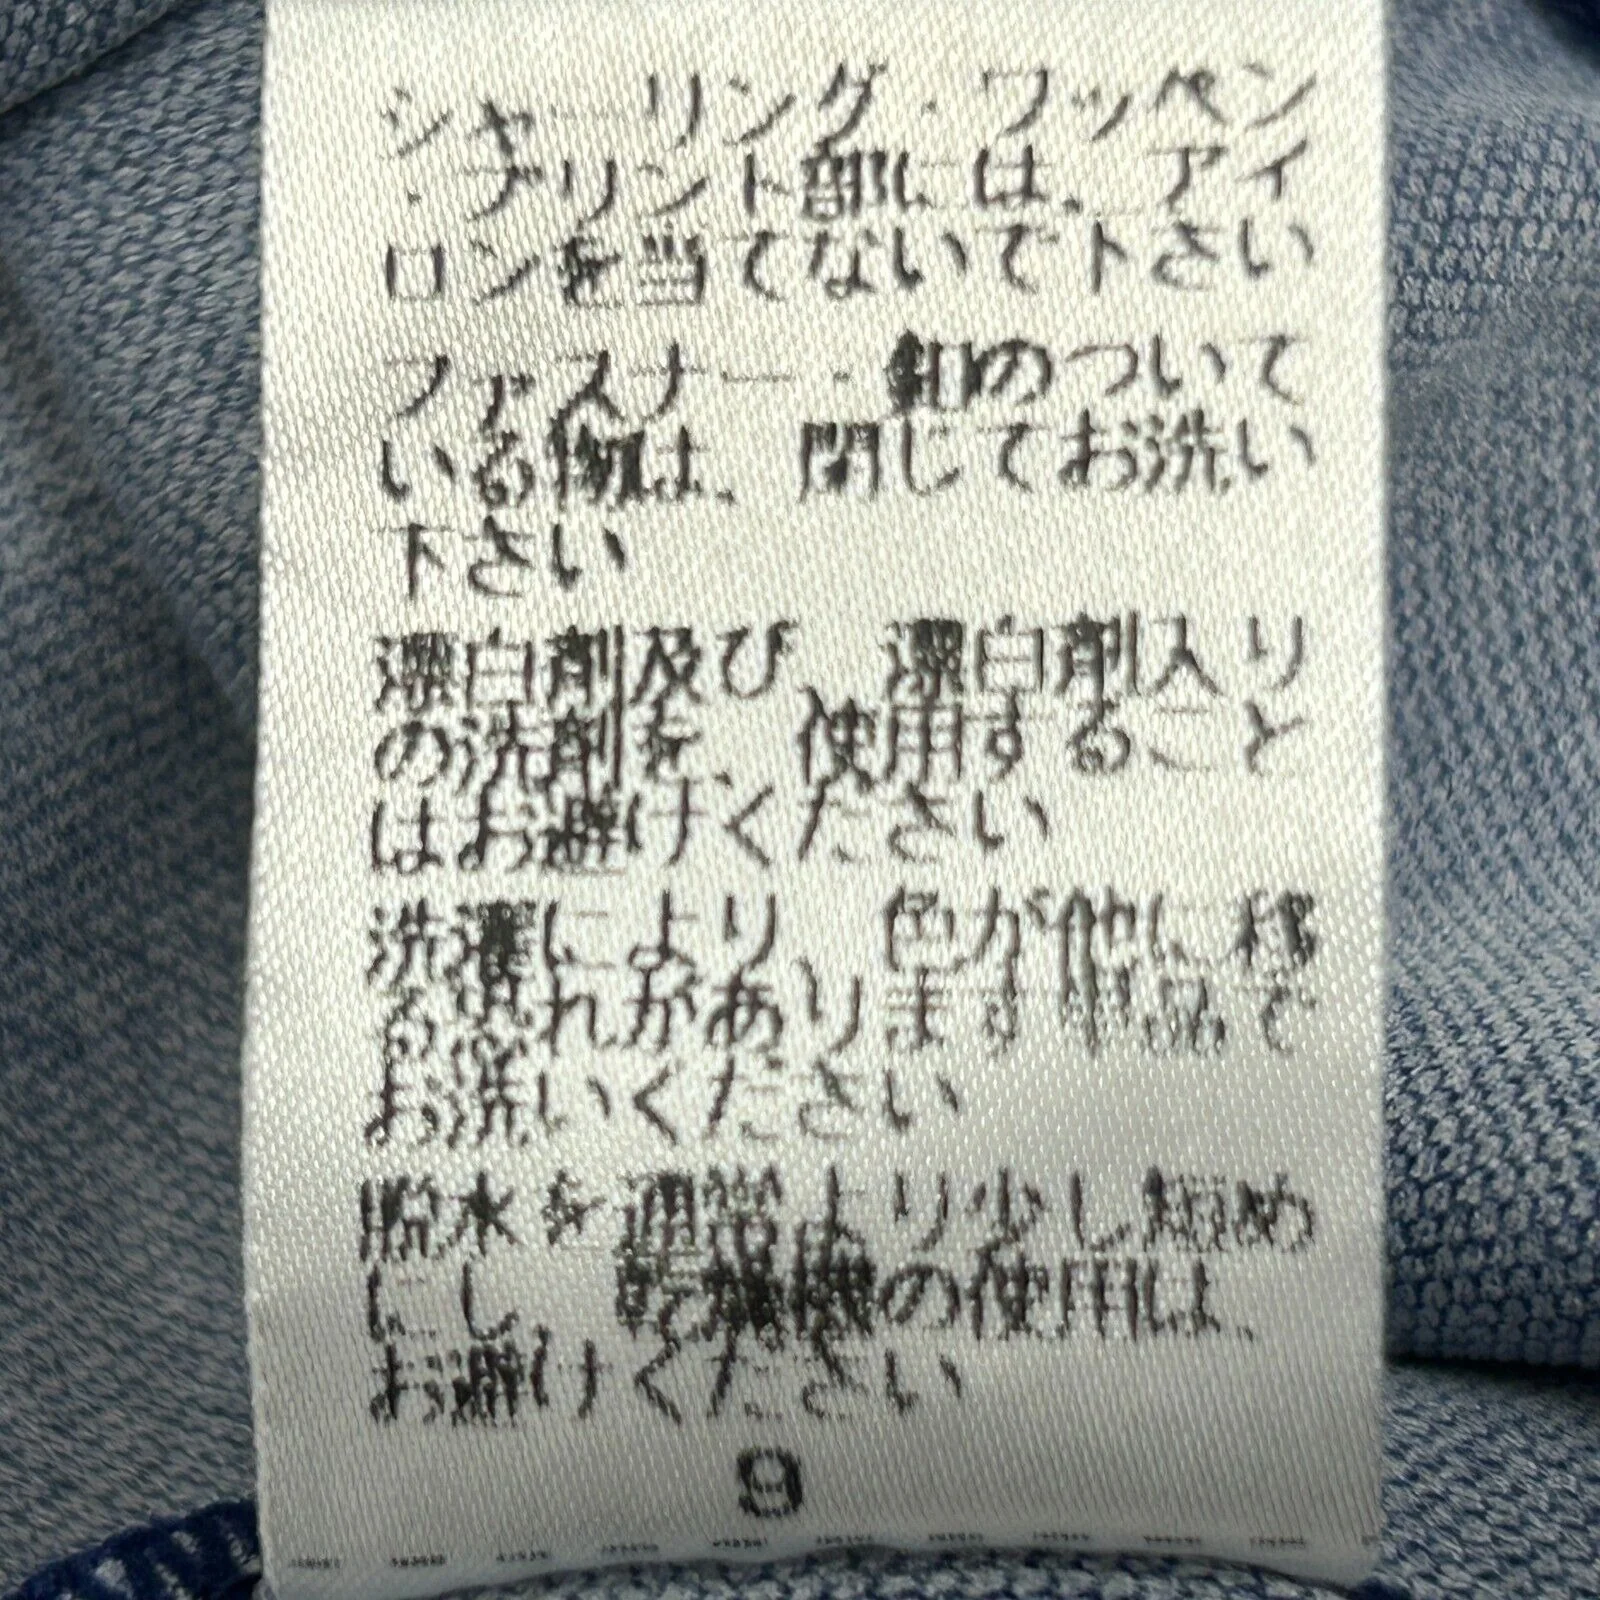 シャーリング・ワッペン
・プリント部には、アイ
ロンを当てないで下さい
ファスナー・釦のついて
いる物は、閉じてお洗い
下さい
漂白剤及び、漂白剤入り
の洗剤を、使用すること
はお避けください
洗濯により、色が他に移
る惧れがあります単品で
お洗いください
脱水を通常より少し短め
にし、乾燥機の使用は、
お避けください
9